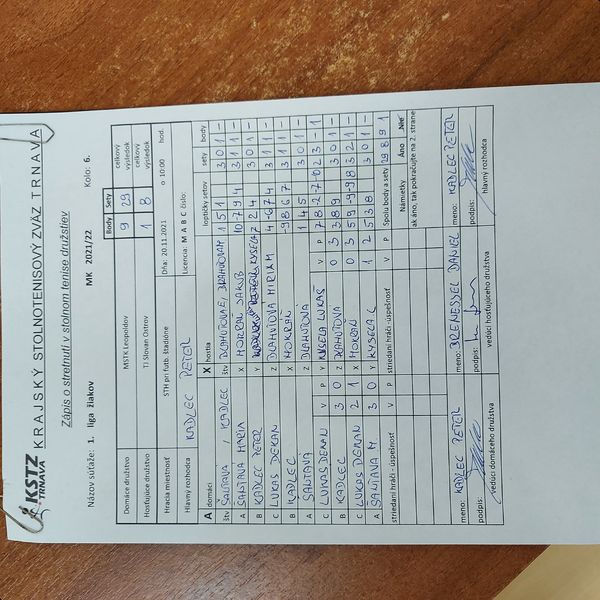 KSTZ TRNAVA
KRAJSKÝ STOLNOTENISOVÝ ZVÄZ TRNAVA
Zápis o stretnutí v stolnom tenise družstiev
Názov súťaže: 1. liga žiakov MK 2021/22 Kolo: 6.
Body Sety
Domáce družstvo MSTK Leopoldov 9 29 celkový výsledok
Hosťujúce družstvo TJ Slovan Ostrov 1 8 celkový výsledok
Hracia miestnosť STH pri futb. štadióne Dňa: 20.11.2021 o 10:00 hod.
Hlavný rozhodca KADLEC PETER Licencia: M A B C číslo:
A domáci X hostia loptičky setov sety body
štv ŠAĽTAVA / KADLEC štv 1 5 1 3 0 1 -
A X MOKRÁŇ JAKUB 10 -7 9 4 3 1 1 -
B KADLEC PETER Y 7 2 4 3 0 1 -
C LUKAS DENAN Z MIRIAM 4 -6 7 4 3 1 1 -
B KADLEC X MOKRÁŇ -9 8 6 7 3 1 1 -
A Z 1 4 5 3 0 1 -
C LUKAS DENAN Y KYSELA LUKÁŠ
B KADLEC 3 0 Z 0 3 3 8 9 3 0 1 -
C LUKAS DENAN 2 1 X MOKRÁŇ 0 3 5 9 -9 -9 8 3 2 1 -
A 3 0 Y KYSELA L 1 2 5 3 8 3 0 1 -
V P
striedaní hráči - úspešnosť V P striedaní hráči - úspešnosť V P Spolu body a sety 29 8 9 1
Námietky Áno Nie
ak áno, tak pokračujte na 2. strane
meno: KADLEC PETER meno: BRENESSEL DANIEL meno: KADLEC PETER
podpis: podpis: podpis:
vedúci domáceho družstva vedúci hosťujúceho družstva hlavný rozhodca